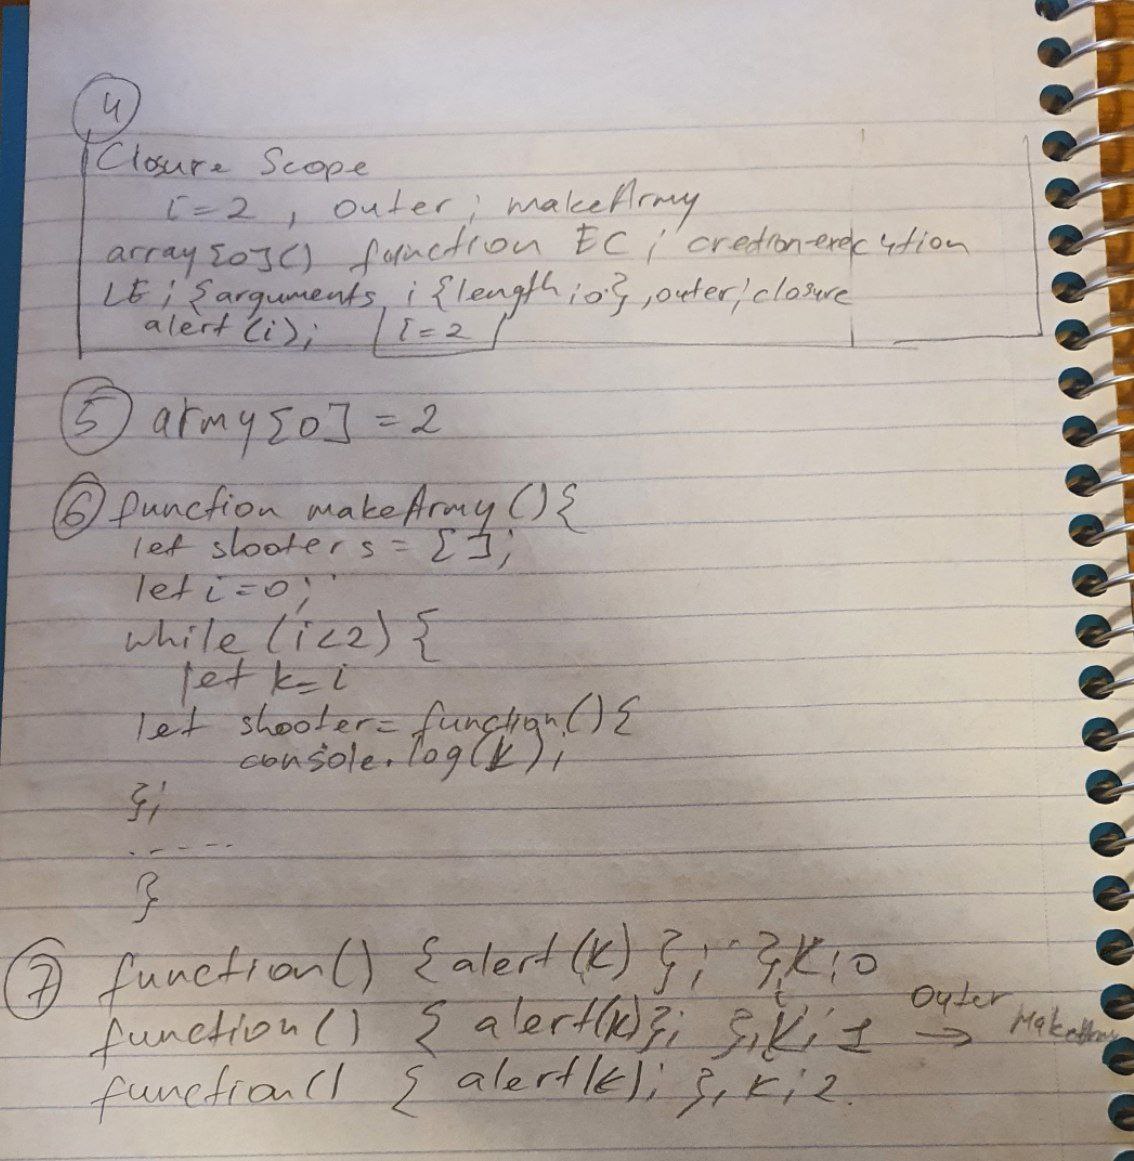 4
Closure Scope
i=2 , outer ; makeArmy
array[0]() function EC ; creation-execution
LE ; {arguments ; {length ; 0} , outer ; closure
alert (i); i=2
5 army[0] = 2
6 function makeArmy () {
let shooters = [ ];
let i=0;
while (i<2) {
let k=i
let shooter= function() {
console.log(k);
};
.....
}
7 function() {alert(k) }; },k;0
function() { alert(k)}; },k;1 outer → MakeArmy
function() { alert(k); }, k;2.